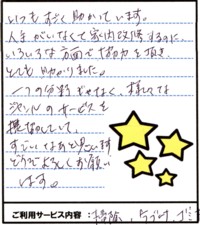 いつもすごく助かっています。
人手がいなくて室内改修するのに、
いろいろな方面で協力を頂き、
とても助かりました。
一つの分野じゃなく、様々な
ジャンルのサービスを
提供していて、
すごいなあと思います
どうぞよろしくお願い
します。
ご利用サービス内容: 掃除、片づけ、ゴミ